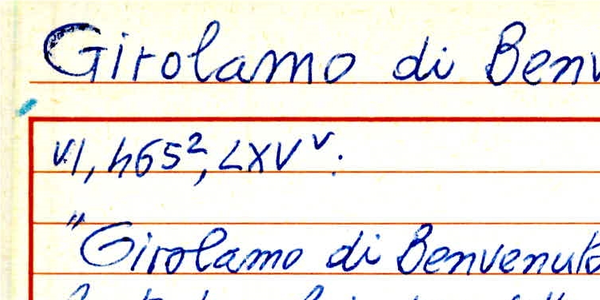 Girolamo di Benv
VI, 465², LXVᵛ.
"Girolamo di Benvenuto